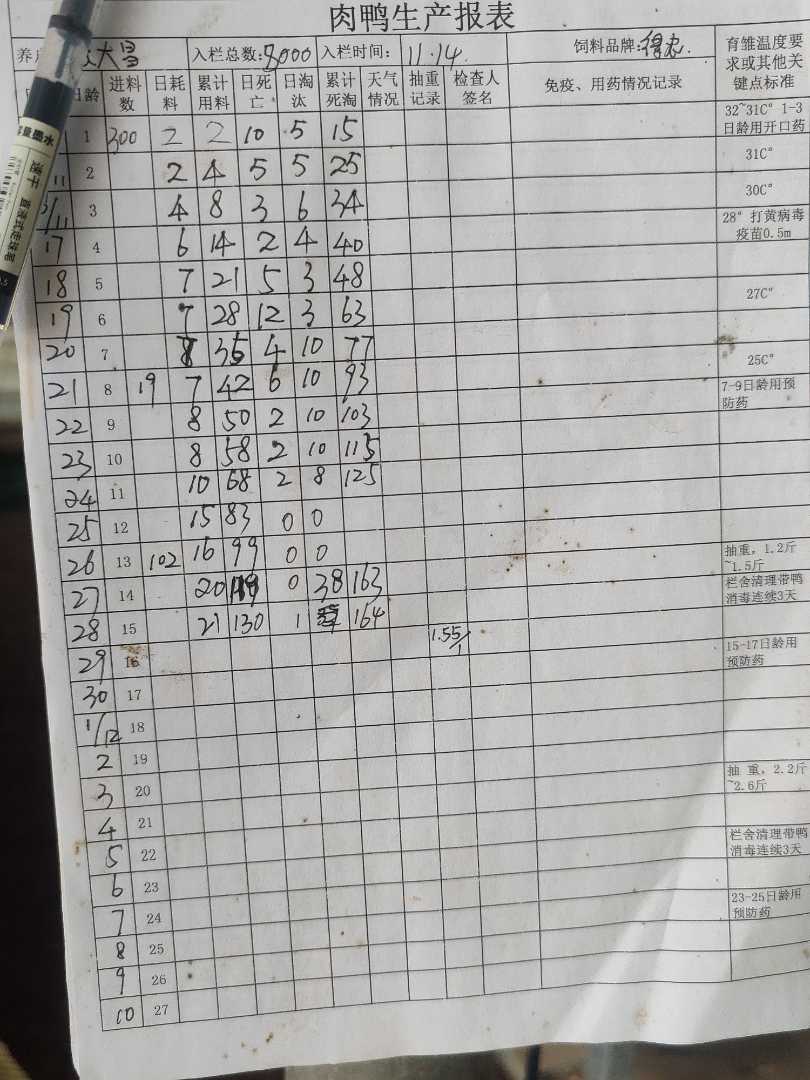 肉鸭生产报表
养 大昌 入栏总数: 8000 入栏时间: 11.14. 饲料品牌: 得惠. 育雏温度要求或其他关键点标准
日龄 进料数 日耗料 累计用料 日死亡 日淘汰 累计死淘 天气情况 抽重记录 检查人签名 免疫、用药情况记录
1 300 2 2 10 5 15 32~31C° 1-3日龄用开口药
11 2 2 4 5 5 25 31C°
/11 3 4 8 3 6 34 30C°
17 4 6 14 2 4 40 28° 打黄病毒疫苗0.5m
18 5 7 21 5 3 48
19 6 7 28 12 3 63 27C°
20 7 8 35 4 10 77
21 8 19 7 42 6 10 93 25C°
22 9 8 50 2 10 103 7-9日龄用预防药
23 10 8 58 2 10 115
24 11 10 68 2 8 125
25 12 15 83 0 0
26 13 102 16 99 0 0 抽重, 1.2斤~1.5斤
27 14 20 119 0 38 163 栏舍清理带鸭消毒连续3天
28 15 21 130 1 164 1.55/1
29 16 15-17日龄用预防药
30 17
1/12 18
2 19
3 20 抽 重, 2.2斤~2.6斤
4 21
5 22 栏舍清理带鸭消毒连续3天
6 23
7 24 23-25日龄用预防药
8 25
9 26
10 27
容量墨水
速干 直液式走珠笔
0.5